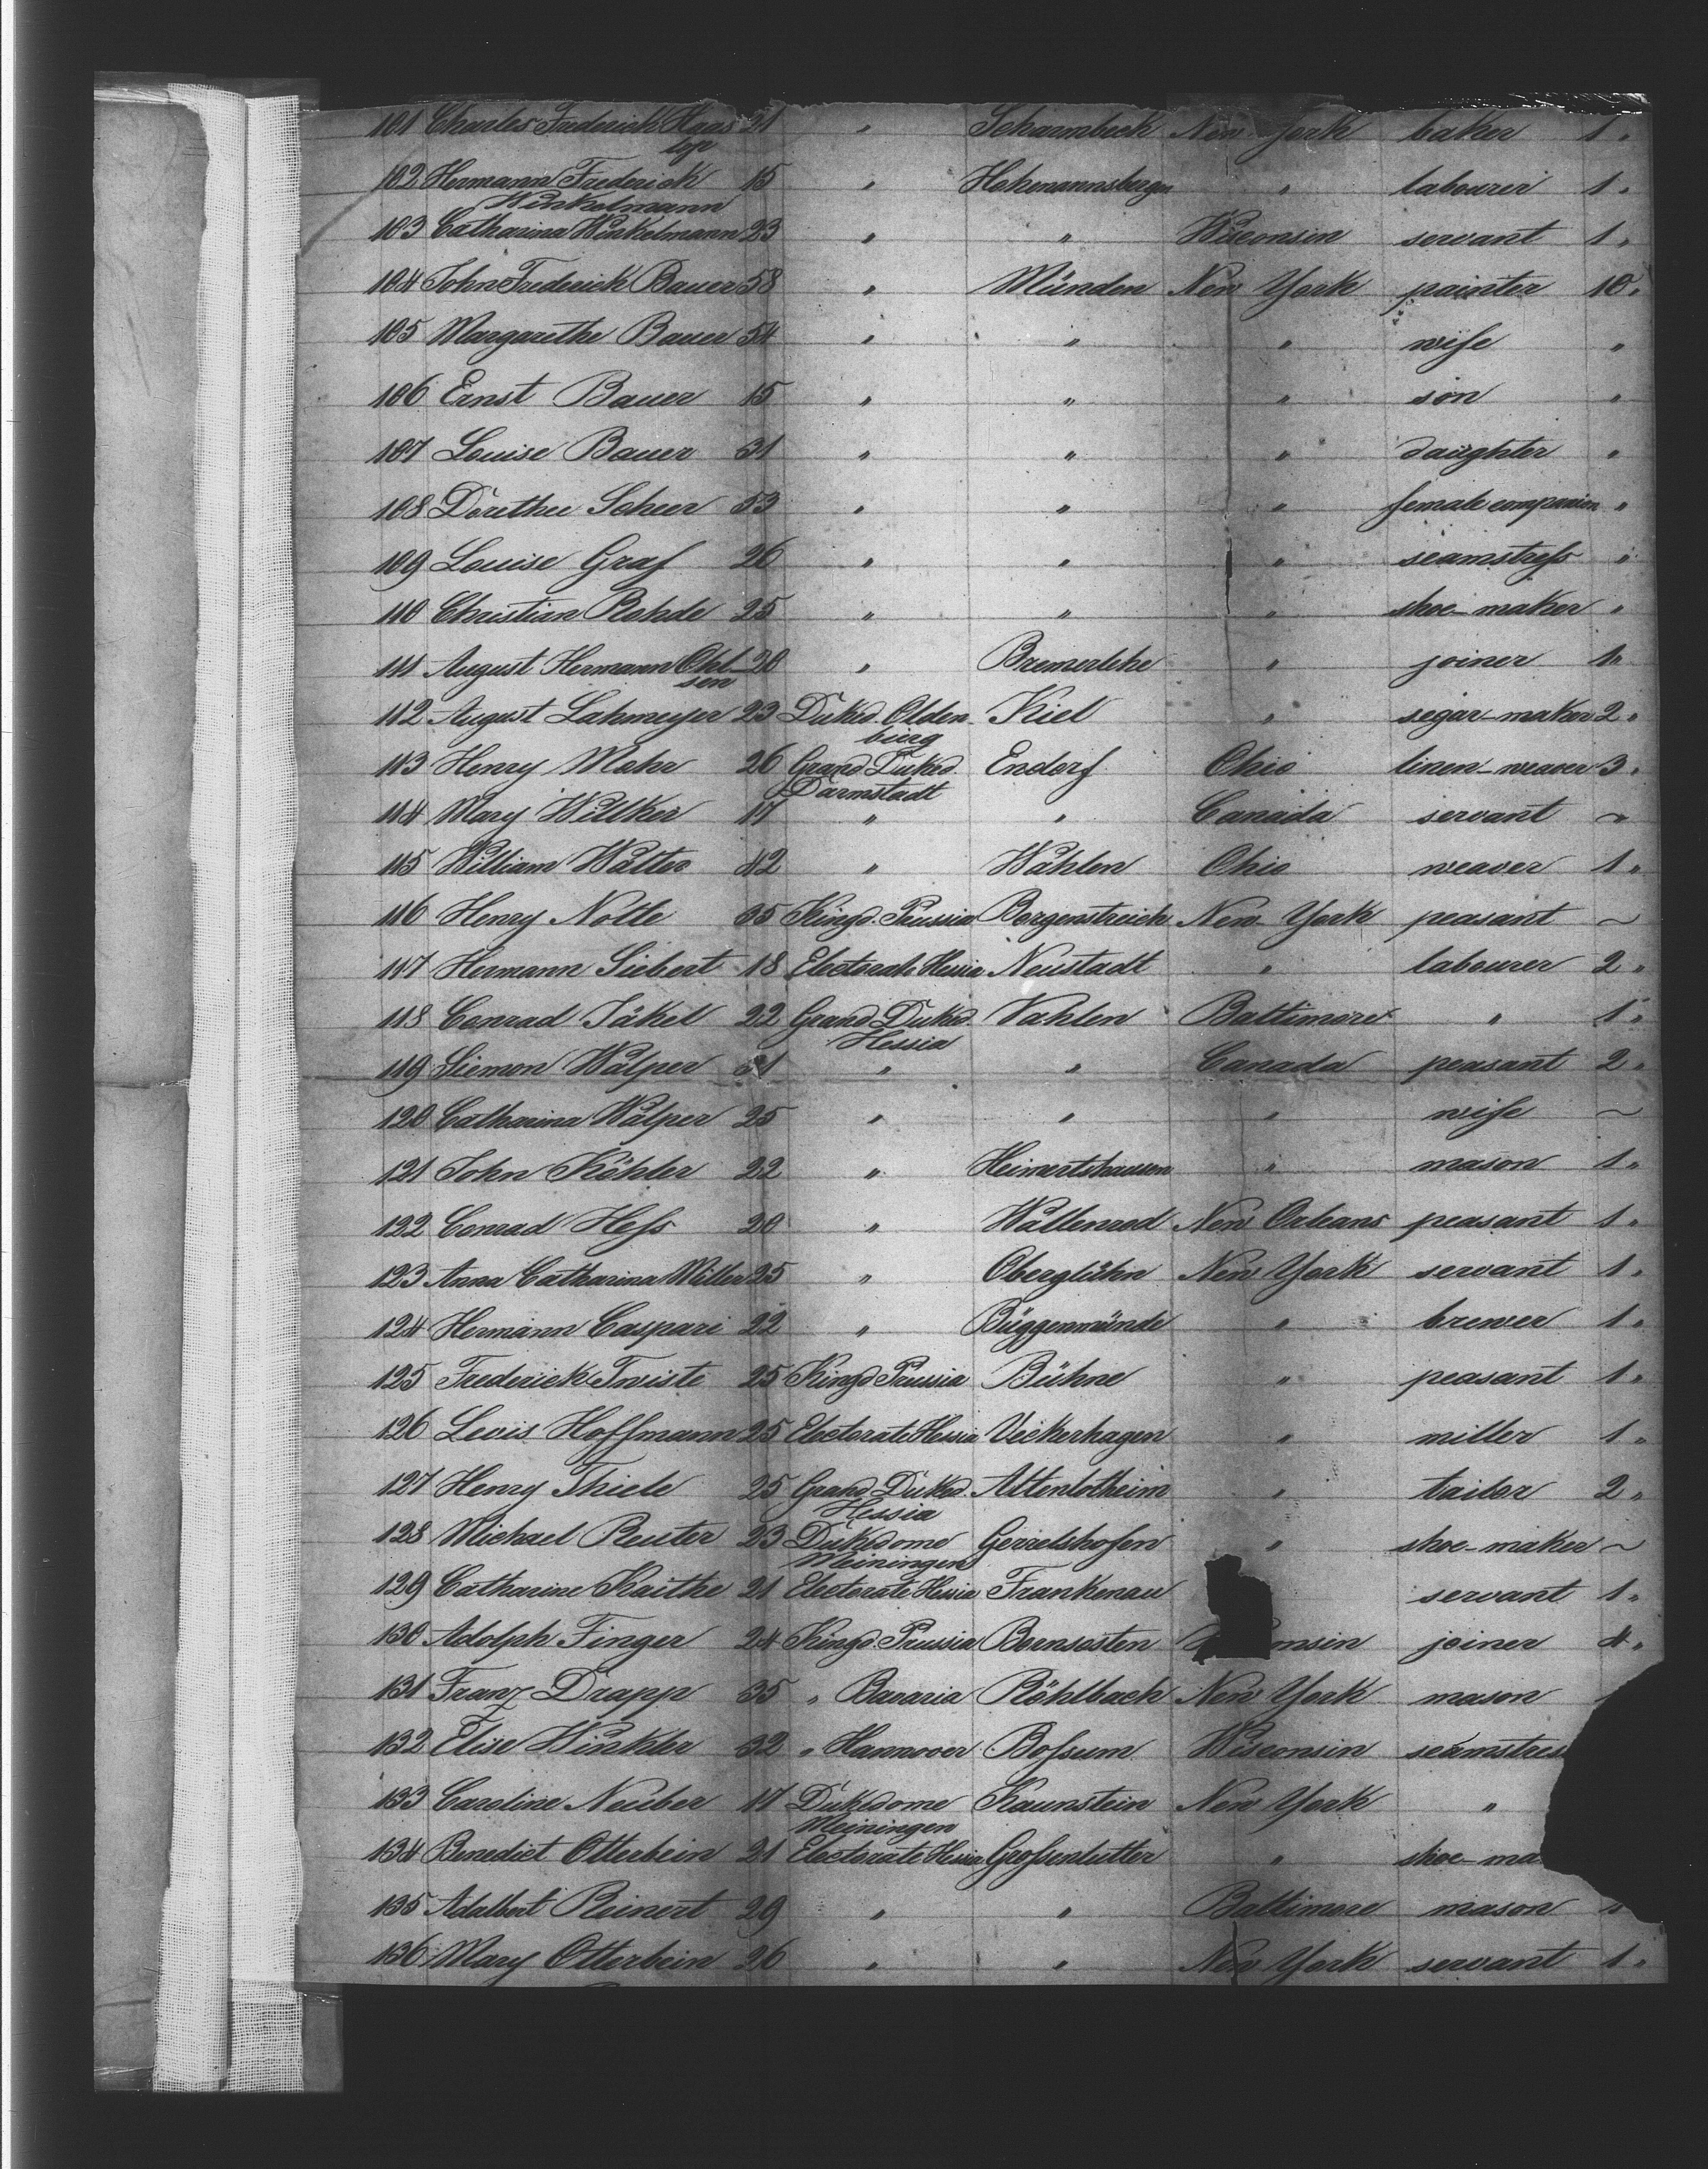 101 Charles Frederick Haas 21 " Scharmbeck New York baker 1 "
lop
102 Hermann Frederick 15 " Hohemannsbergn " labourer 1 "
Winkelmann
103 Catharina Winkelmann 23 " " Wisconsin servant 1 "
104 John Frederick Bauer 58 " Münden New York painter 10 "
105 Margarethe Bauer 54 " " " wife "
106 Ernst Bauer 15 " " " son "
107 Louise Bauer 31 " " " daughter "
108 Dorethee Scheer 53 " " " female companion "
109 Louise Graf 26 " " " seamstress "
110 Christian Rohde 25 " " " shoe-maker "
111 August Hermann Ohl- 20 " Bremerlehe " joiner 1 "
sen
112 August Lahmeyer 23 Duked. Olden- Kiel " segar-maker 2 "
burg
113 Henry Mohr 26 Grand Duked. Endorf Ohio linen-weaver 3 "
Darmstadt
114 Mary Willker 17 " " Canada servant ~
115 William Walter 42 " Wahlen Ohio weaver 1 "
116 Henry Nolte 35 Kingd. Prussia Borgenstreich New-York peasant ~
117 Hermann Siebert 18 Electorate Hessia Neustadt " labourer 2 "
118 Conrad Jäkel 22 Grand Duked. Vahlen Baltimore " 1 "
Hessia
119 Siemon Walper 31 " " Canada peasant 2 "
120 Catharina Walper 25 " " " wife ~
121 John Köhler 22 " Heimertshausen " mason 1 "
122 Conrad Hess 20 " Wallenrod New Orleans peasant 1 "
123 Anna Catharina Miller 25 " Oberglüten New York servant 1 "
124 Hermann Caspari 22 " Büggenmünde " brewer 1 "
125 Frederick Twiste 25 Kingd. Prussia Bühne " peasant 1 "
126 Levis Hoffmann 25 Electorate Hessia Veckerhagen " miller 1 "
127 Henry Thiele 25 Grand Duked. Altenlotheim " tailor 2 "
Hessia
128 Michael Reuter 23 Dukedome Gerrelshofen " shoe-maker ~
Meiningen
129 Catharine Kaithe 21 Electorate Hessia Frankenau servant 1 "
130 Adolph Finger 24 Kingd. Prussia Bornsosten onsin joiner 4 "
131 Franz Drapp 35 " Bavaria Röhlbach New York mason
132 Elise Winkler 32 " Hannover Bossum Wisconsin seamstres
133 Caroline Neuber 17 Dukedome Raunstein New York "
Meiningen
134 Benedict Otterbein 21 Electorate Hessia Grossenlutter " shoe-ma
135 Adalbert Reinert 29 " " Baltimore mason
136 Mary Otterbein 26 " " New York servant 1 "